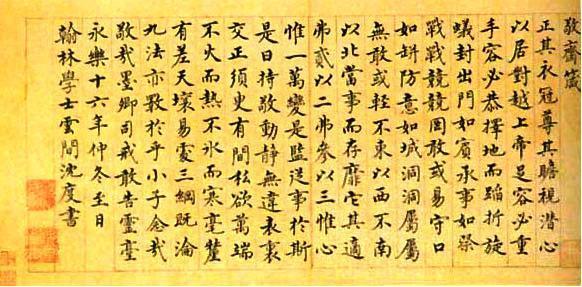 敬齋箴
正其衣冠尊其瞻視潜心
以居對越上帝足容必重
手容必恭擇地而蹈折旋
蟻封出門如賓承事如祭
戰戰兢兢罔敢或易守口
如缾防意如城洞洞屬屬
無敢或輕不東以西不南
以北當事而存靡它其適
弗貳以二弗參以三惟心
惟一萬變是監從事於斯
是曰持敬動静無違表裏
交正須臾有間私欲萬端
不火而熱不氷而寒毫釐
有差天壤易處三綱既淪
九法亦斁於乎小子念哉
敬哉墨卿司戒敢告靈臺
永樂十六年仲冬至日
翰林學士雲間沈度書